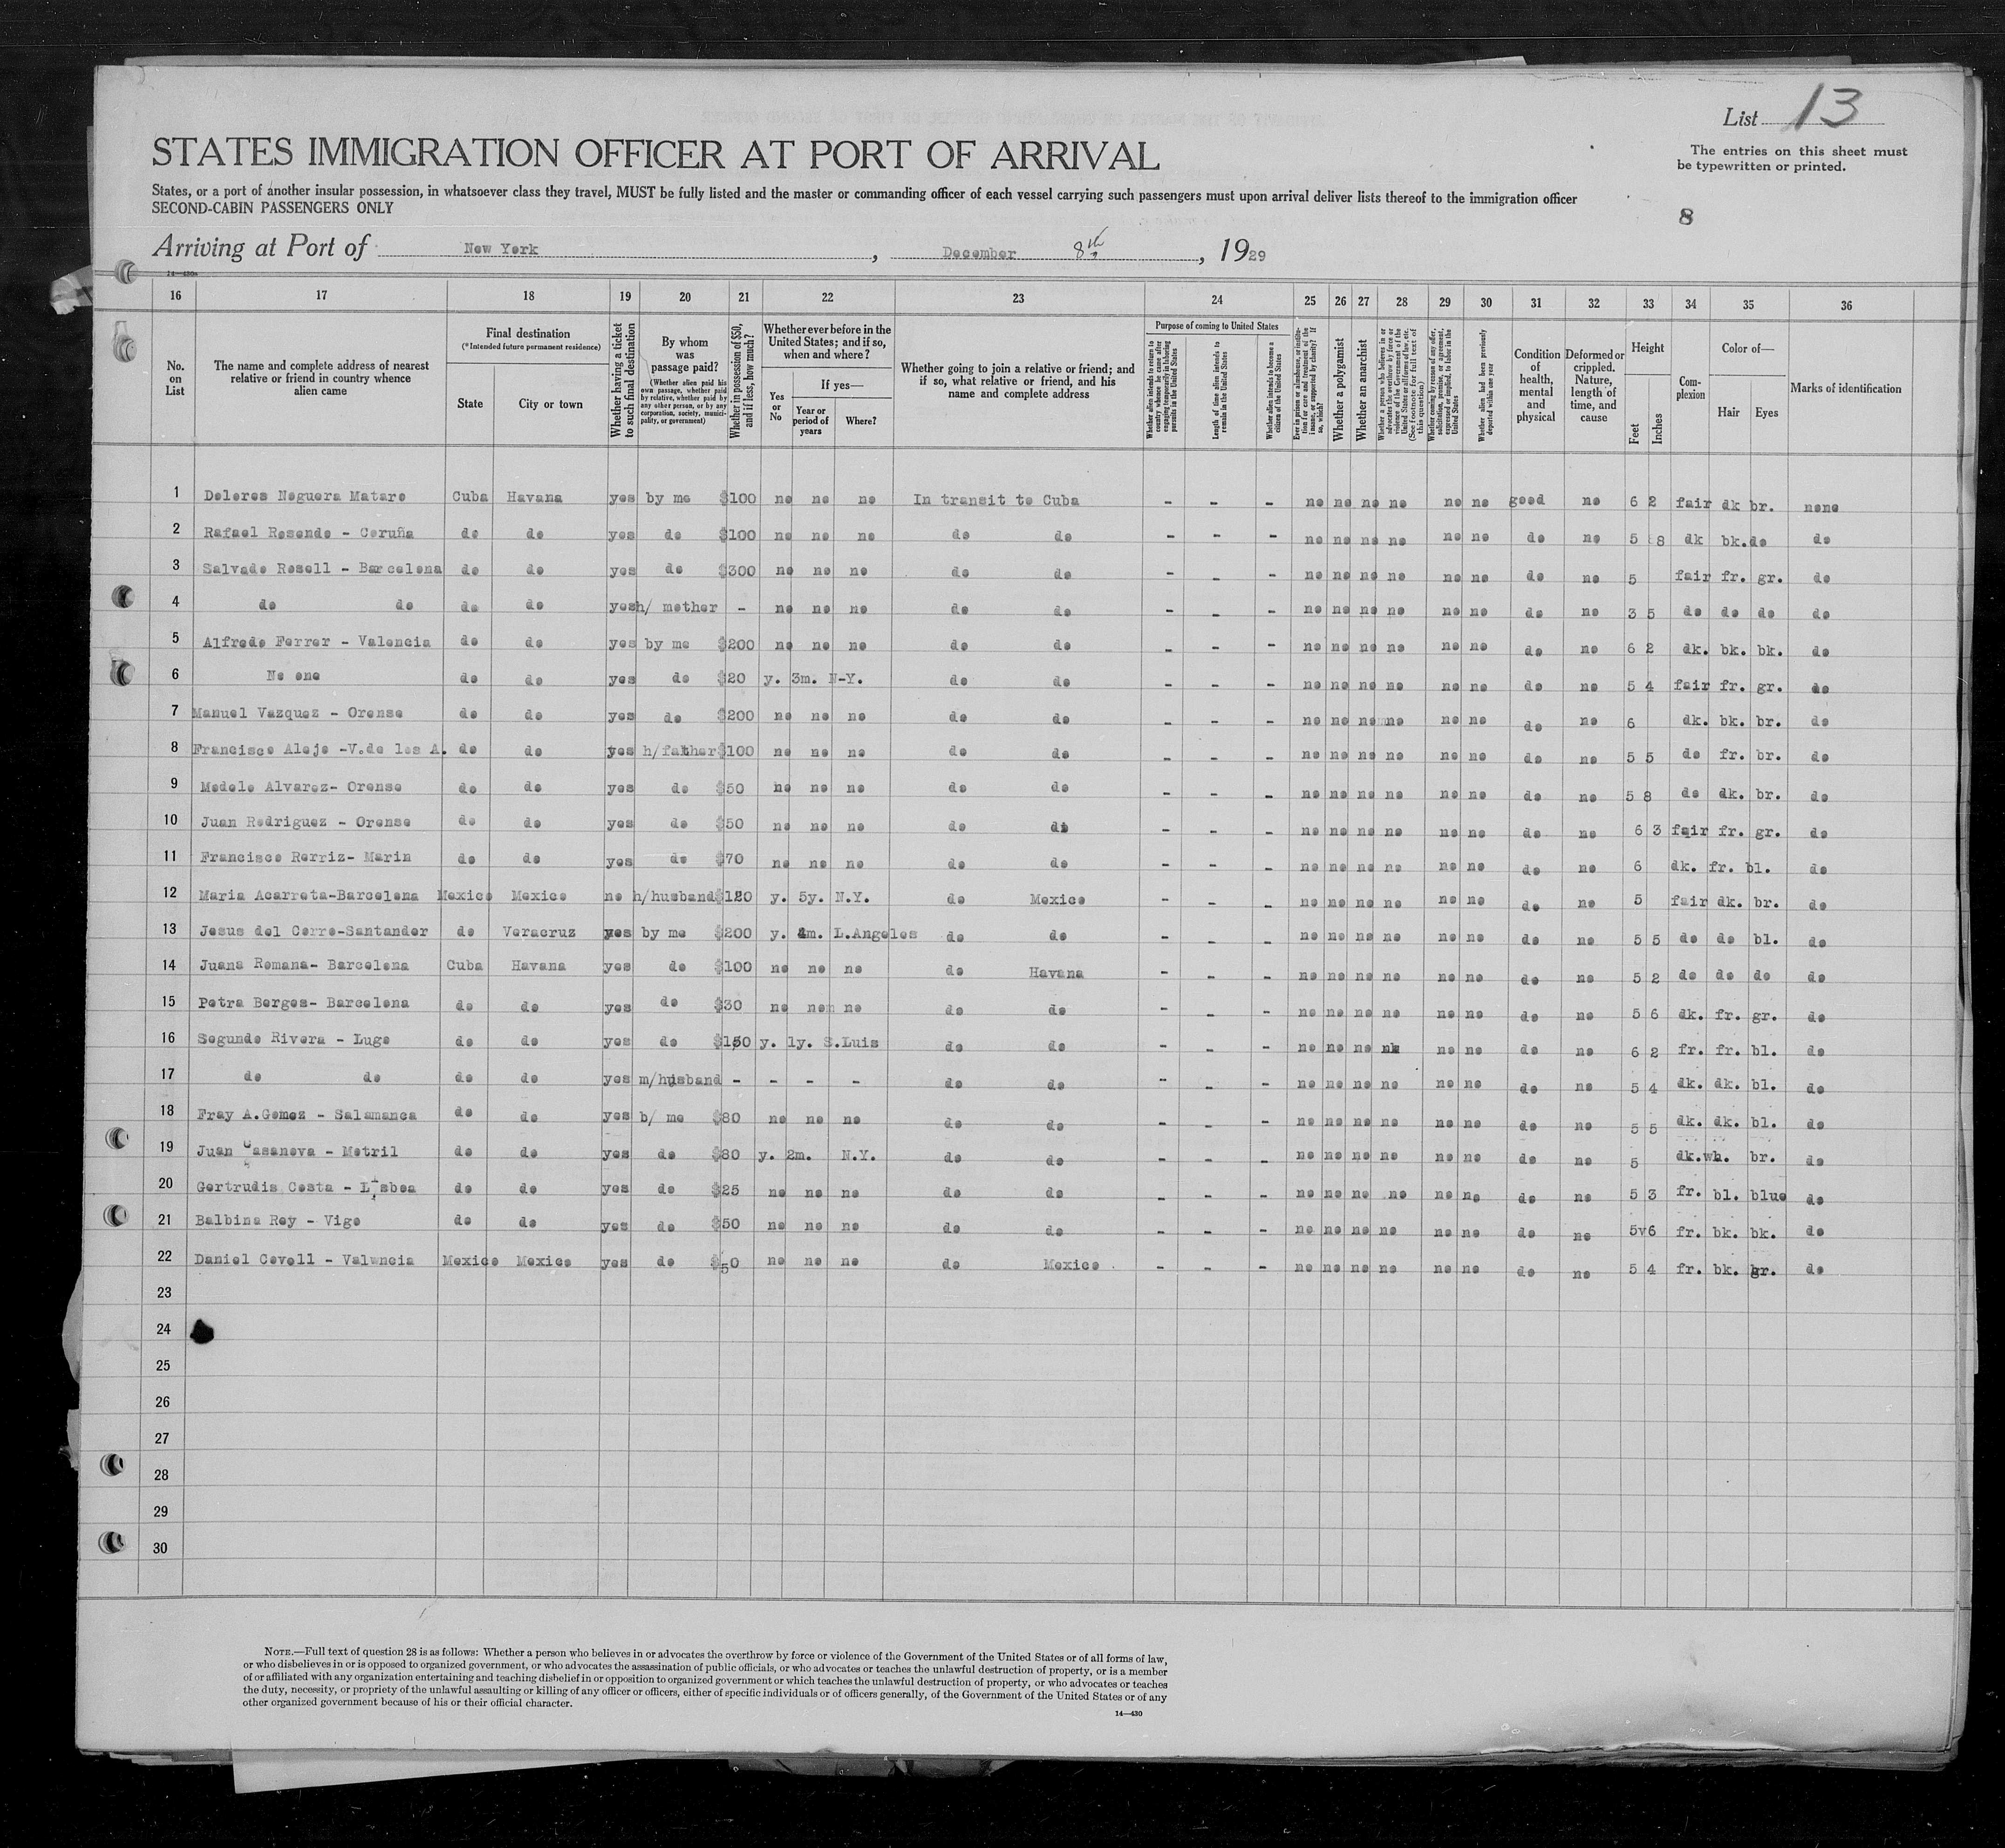 List 13
The entries on this sheet must
be typewritten or printed.
STATES IMMIGRATION OFFICER AT PORT OF ARRIVAL
States, or a port of another insular possession, in whatsoever class they travel, MUST be fully listed and the master or commanding officer of each vessel carrying such passengers must upon arrival deliver lists thereof to the immigration officer
SECOND-CABIN PASSENGERS ONLY
8
Arriving at Port of New York, December 8th, 1929
14—430a
16 17 18 19 20 21 22 23 24 25 26 27 28 29 30 31 32 33 34 35 36
No. on List
The name and complete address of nearest relative or friend in country whence alien came
Final destination
(*Intended future permanent residence)
State
City or town
Whether having a ticket to such final destination
By whom was passage paid?
(Whether alien paid his own passage, whether paid by relative, whether paid by any other person, or by any corporation, society, municipality, or government)
Whether in possession of $50, and if less, how much?
Whether ever before in the United States; and if so, when and where?
Yes or No
If yes—
Year or period of years
Where?
Whether going to join a relative or friend; and if so, what relative or friend, and his name and complete address
Purpose of coming to United States
Whether alien intends to return to country whence he came after engaging temporarily in laboring pursuits in the United States
Length of time alien intends to remain in the United States
Whether alien intends to become a citizen of the United States
Ever in prison or almshouse, or institution for care and treatment of the insane, or supported by charity? If so, which?
Whether a polygamist
Whether an anarchist
Whether a person who believes in or advocates the overthrow by force or violence of the Government of the United States or all forms of law, etc. (See footnote for full text of this question)
Whether coming by reason of any offer, solicitation, promise, or agreement, expressed or implied, to labor in the United States
Whether alien had been previously deported within one year
Condition of health, mental and physical
Deformed or crippled. Nature, length of time, and cause
Height
Feet
Inches
Complexion
Color of—
Hair
Eyes
Marks of identification
1 Dolores Noguera Mataro Cuba Havana yes by me $100 no no no In transit to Cuba - - - no no no no no no good no 6 2 fair dk br. none
2 Rafael Resende - Coruña do do yes do $100 no no no do do - - - no no no no no no do no 5 8 dk bk. do do
3 Salvado Rosell - Barcelona do do yes do $300 no no no do do - - - no no no no no no do no 5 fair fr. gr. do
4 do do do do yes h/ mother - no no no do do - - - no no no no no no do no 3 5 do do do do
5 Alfredo Ferrer - Valencia do do yes by me $200 no no no do do - - - no no no no no no do no 6 2 dk. bk. bk. do
6 No one do do yes do $20 y. 3m. N-Y. do do - - - no no no no no no do no 5 4 fair fr. gr. do
7 Manuel Vazquez - Orense do do yes do $200 no no no do do - - - no no no no no no do no 6 dk. bk. br. do
8 Francisco Alejo -V.de los A. do do yes h/father $100 no no no do do - - - no no no no no no do no 5 5 do fr. br. do
9 Modelo Alvarez- Orense do do yes do $50 no no no do do - - - no no no no no no do no 5 8 do dk. br. do
10 Juan Rodriguez - Orense do do yes do $50 no no no do di - - - no no no no no no do no 6 3 fair fr. gr. do
11 Francisco Rorriz- Marin do do yes do $70 no no no do do - - - no no no no no no do no 6 dk. fr. bl. do
12 Maria Acarreta-Barcelona Mexico Mexico no h/husband $120 y. 5y. N.Y. do Mexico - - - no no no no no no do no 5 fair dk. br. do
13 Jesus del Cerro-Santander do Veracruz yes by me $200 y. 4m. L.Angeles do do - - - no no no no no no do no 5 5 do do bl. do
14 Juana Romana- Barcelona Cuba Havana yes do $100 no no no do Havana - - - no no no no no no do no 5 2 do do do do
15 Petra Borges- Barcelona do do yes do $30 no no no do do - - - no no no no no no do no 5 6 dk. fr. gr. do
16 Segundo Rivera - Lugo do do yes do $150 y. 1y. S.Luis do do - - - no no no no no no do no 6 2 fr. fr. bl. do
17 do do do do yes m/husband - - - - do do - - - no no no no no no do no 5 4 dk. dk. bl. do
18 Fray A.Gomez - Salamanca do do yes b/ me $80 no no no do do - - - no no no no no no do no 5 5 dk. dk. bl. do
19 Juan Casanova - Motril do do yes do $80 y. 2m. N.Y. do do - - - no no no no no no do no 5 dk. wh. br. do
20 Gertrudis Costa - Lisboa do do yes do $25 no no no do do - - - no no no no no no do no 5 3 fr. bl. blue do
21 Balbina Rey - Vigo do do yes do $50 no no no do do - - - no no no no no no do no 5v6 fr. bk. bk. do
22 Daniel Covell - Valwncia Mexico Mexico yes do $50 no no no do Mexico - - - no no no no no no do no 5 4 fr. bk. gr. do
23
24
25
26
27
28
29
30
NOTE.—Full text of question 28 is as follows: Whether a person who believes in or advocates the overthrow by force or violence of the Government of the United States or of all forms of law,
or who disbelieves in or is opposed to organized government, or who advocates the assassination of public officials, or who advocates or teaches the unlawful destruction of property, or is a member
of or affiliated with any organization entertaining and teaching disbelief in or opposition to organized government or which teaches the unlawful destruction of property, or who advocates or teaches
the duty, necessity, or propriety of the unlawful assaulting or killing of any officer or officers, either of specific individuals or of officers generally, of the Government of the United States or of any
other organized government because of his or their official character.
14—430